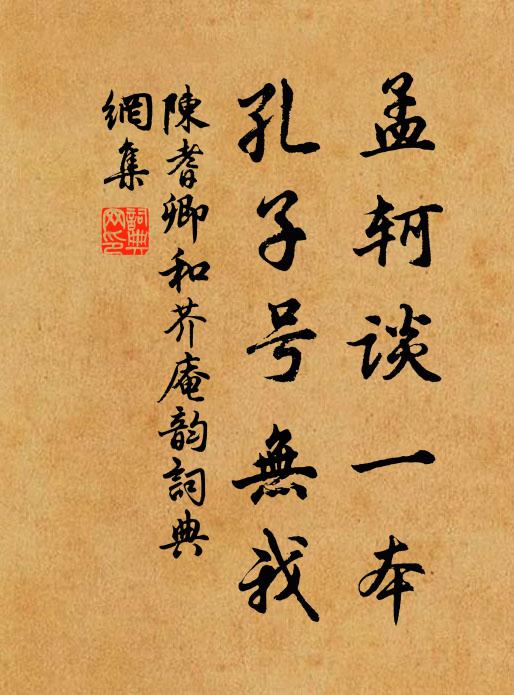 孟轲谈一本
孔子号無我
陳耆卿和芥庵韵詞典
網集
詞典網印